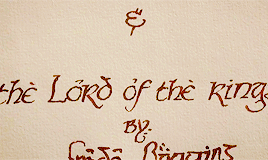 &
the Lord of the rings
by
Frodo Baggins